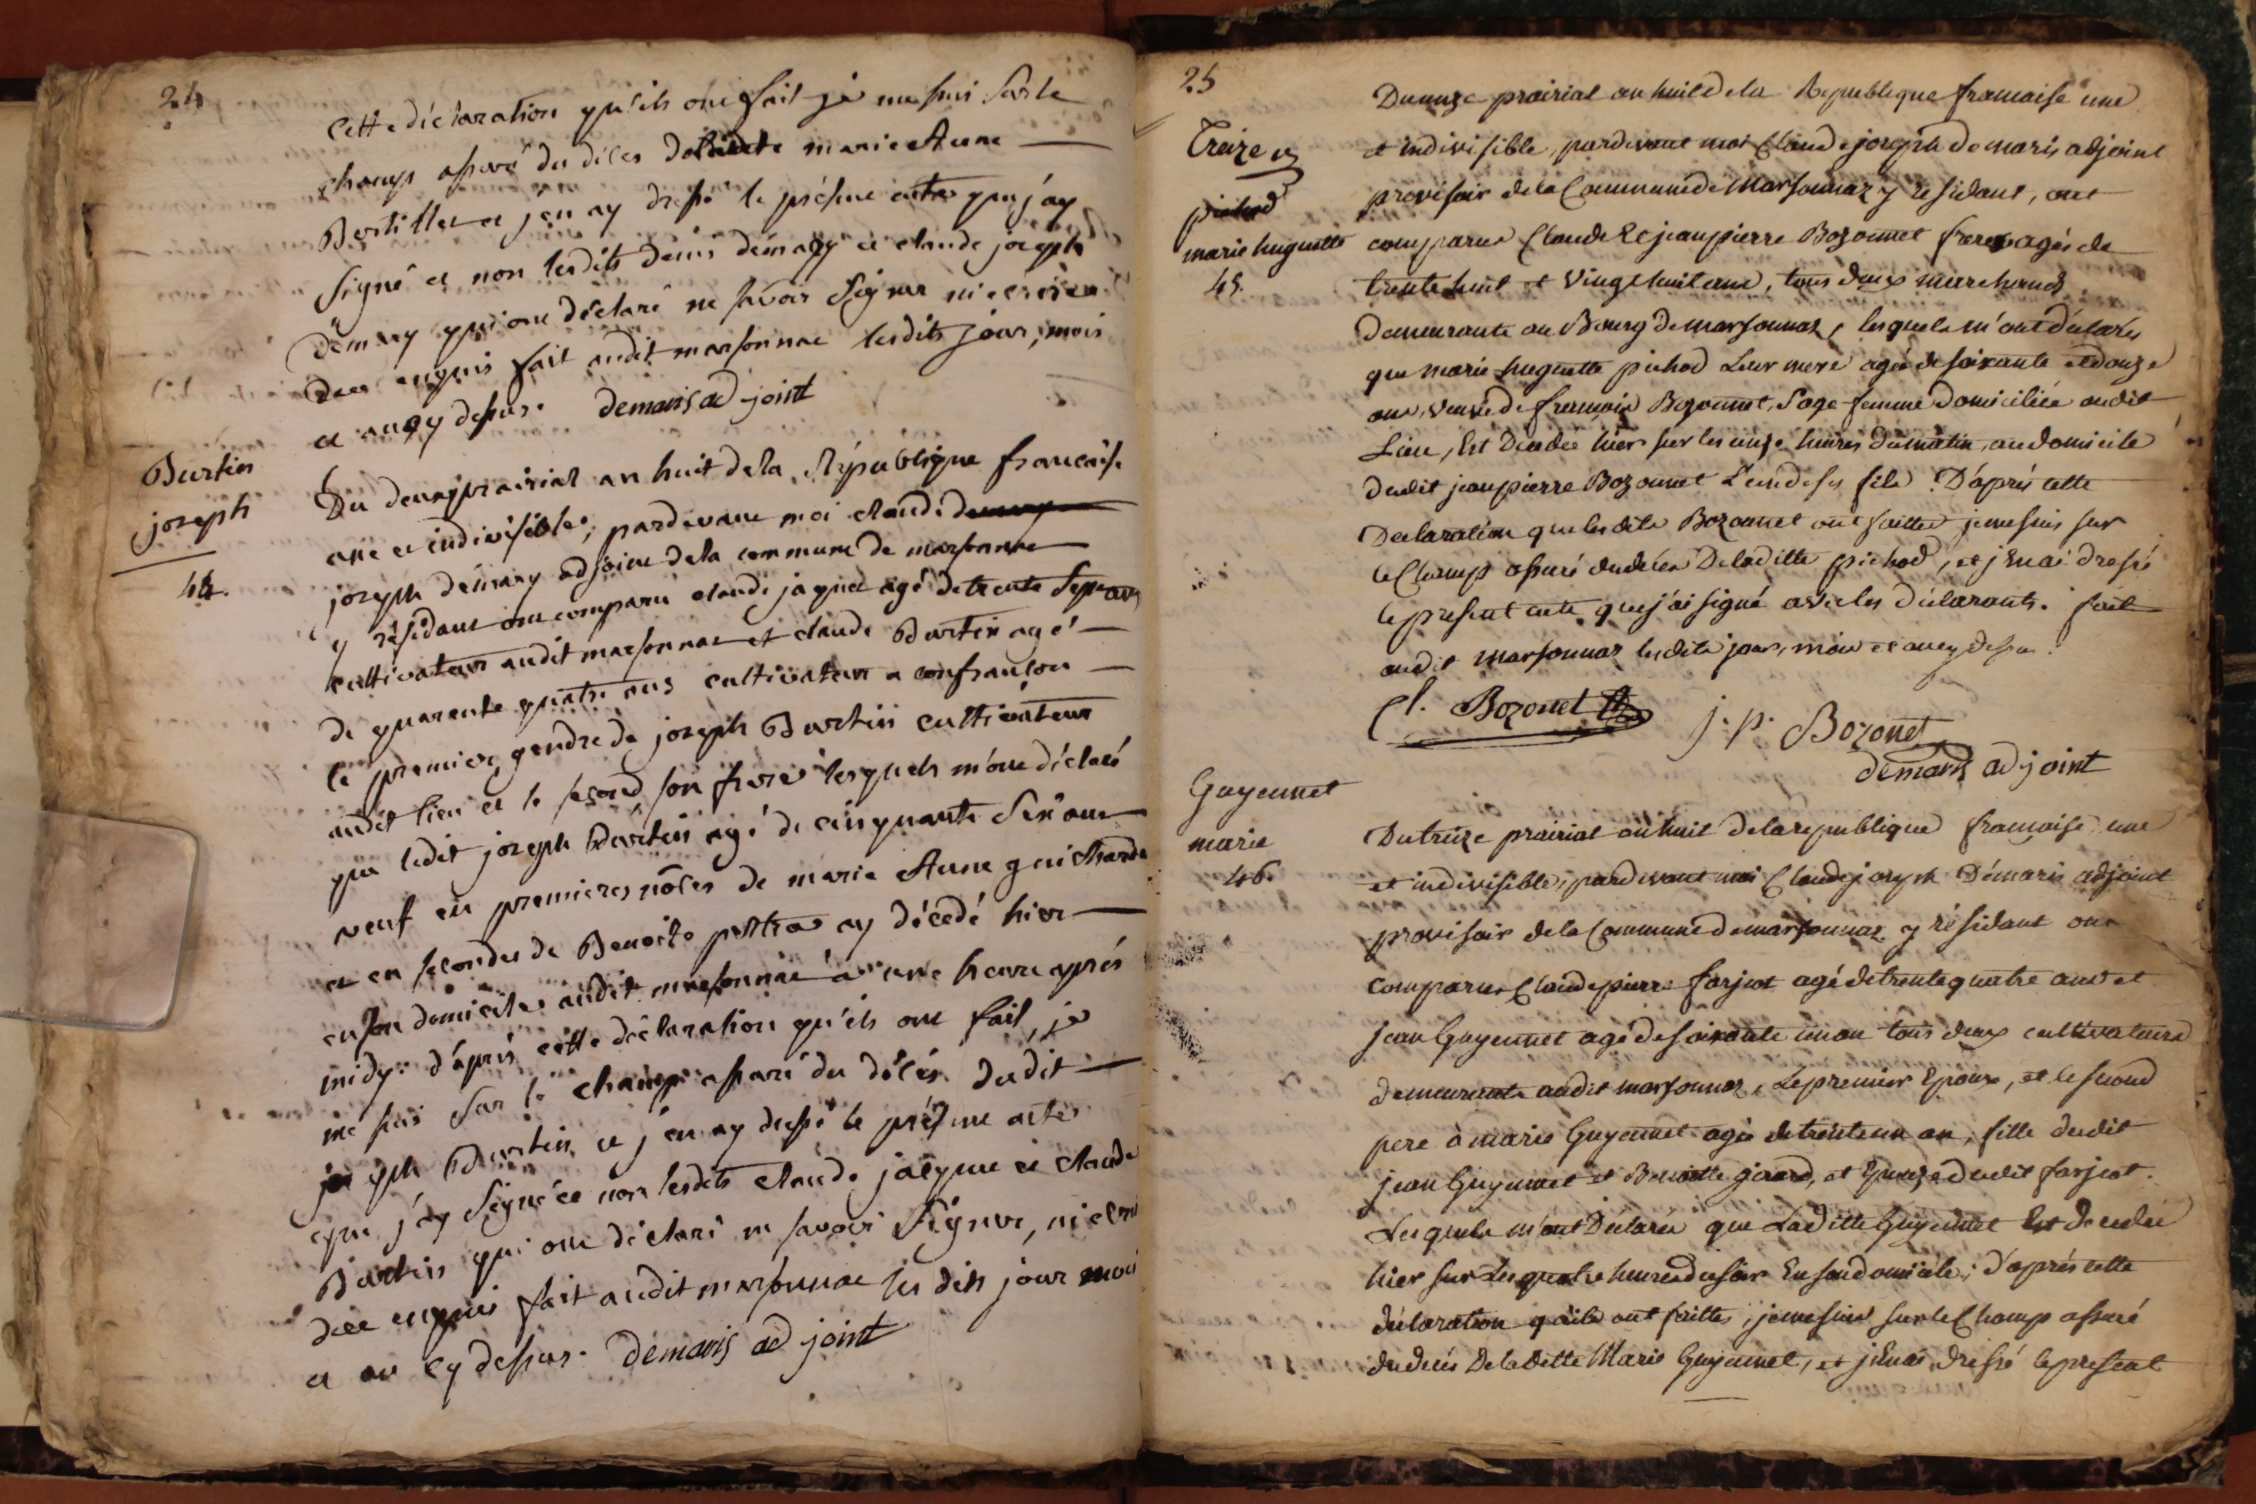 24
cette déclaration qu'ils ont fait je me suis sur le
champ assuré du décès de ladite marie Anne
Bertillet et j'en ay dressé le présent acte que j'ay
signé et non lesdits denis démary et claude joseph
démary qui ont déclaré ne savoir signer ni écrire
dee enquis fait audit marsonnac lesdits jour, mois
et an cy dessus. demaris adjoint
Burtin
joseph
44.
Du deux prairial an huit de la République française
une et indivisible, pardevant moi claude
joseph démary adjoint de la commune de marsonnac
y résidant ont comparu claude jaquet agé de trente sept ans
cultivateur audit marsonnac et claude Burtin agé
de quarente quatre ans cultivateur a confrançon
le premier gendre de joseph Burtin cultivateur
audit lieu et le second son frere lesquels m'ont déclaré
que ledit joseph Burtin agé de cinquante six ans
veuf en premieres nôces de marie Anne guichard
et en secondes de Benoite ay décédé hier
en son domicile audit marsonnac a une heure après
midy. d'après cette déclaration qu'ils ont fait, je
me suis sur le champ assuré du décès dudit
joseph Burtin et j'en ay dressé le présent acte
que j'ay signé et non lesdits claude jacque et claude
Burtin qui ont déclaré ne savoir signer, ni écrire
dee enquis fait audit marsonnac les dits jour mois
et an cy dessus. demaris adjoint
25
Du onze prairial an huit de la Republique francaise une
et indivisible, pardevant moi Claude joseph demaris adjoint
provisoir de la Commune de Marsonnaz y residant, ont
comparus Claude et jean pierre Bozonnet freres agés de
trente huit et vingt huit ans, tous deux marchands
demeurants au Bourg de marsonnaz, lesquels m'ont déclarés
que marie huguette pichod Leur mere agée de soixante et douze
ans, veuve de francois Bozonnet, sage femme domiciliée audit
Lieu, Est Décédée hier sur les onze heures du matin, au domicile
dudit jean pierre Bozonnet L'un de ses fils. D'aprés cette
Declaration que lesdits Bozonnet ont faitte, je me suis sur
le Champ assuré du decés De laditte pichod, et j'En ai dressé
le present acte que j'ai signé avec les déclarants. fait
audit Marsonnaz lesdits jour, mois et an cy dessus.
Treize
pichod
marie huguette
45.
Cl. Bozonet
j. p. Bozonet
demaris adjoint
Guyennet
marie
46.
Du treize prairial an huit de la republique francaise une
et indivisible, pardevant moi Claude joseph Démaris adjoint
provisoir de la Commune de marsonnaz y résidant ont
comparus Claude pierre farjeot agé de trente quatre ans et
jean Guyennet agé de soixante un an tous deux cultivateurs
demeurants audit marsonnaz, Le premier Epoux, et le second
pere à marie Guyennet agée de trente un an, fille dudit
jean Guyennet et Benoitte girard, et Epouze dudit farjeot.
Lesquels m'ont Déclarés que Laditte Guyennet Est decedée
hier sur les quatre heures du soir En son domicile; d'aprés cette
déclaration qu'ils ont faitte, je me suis sur le Champ assuré
du decés De laditte Marie Guyennet, et j'En ai dressé le present